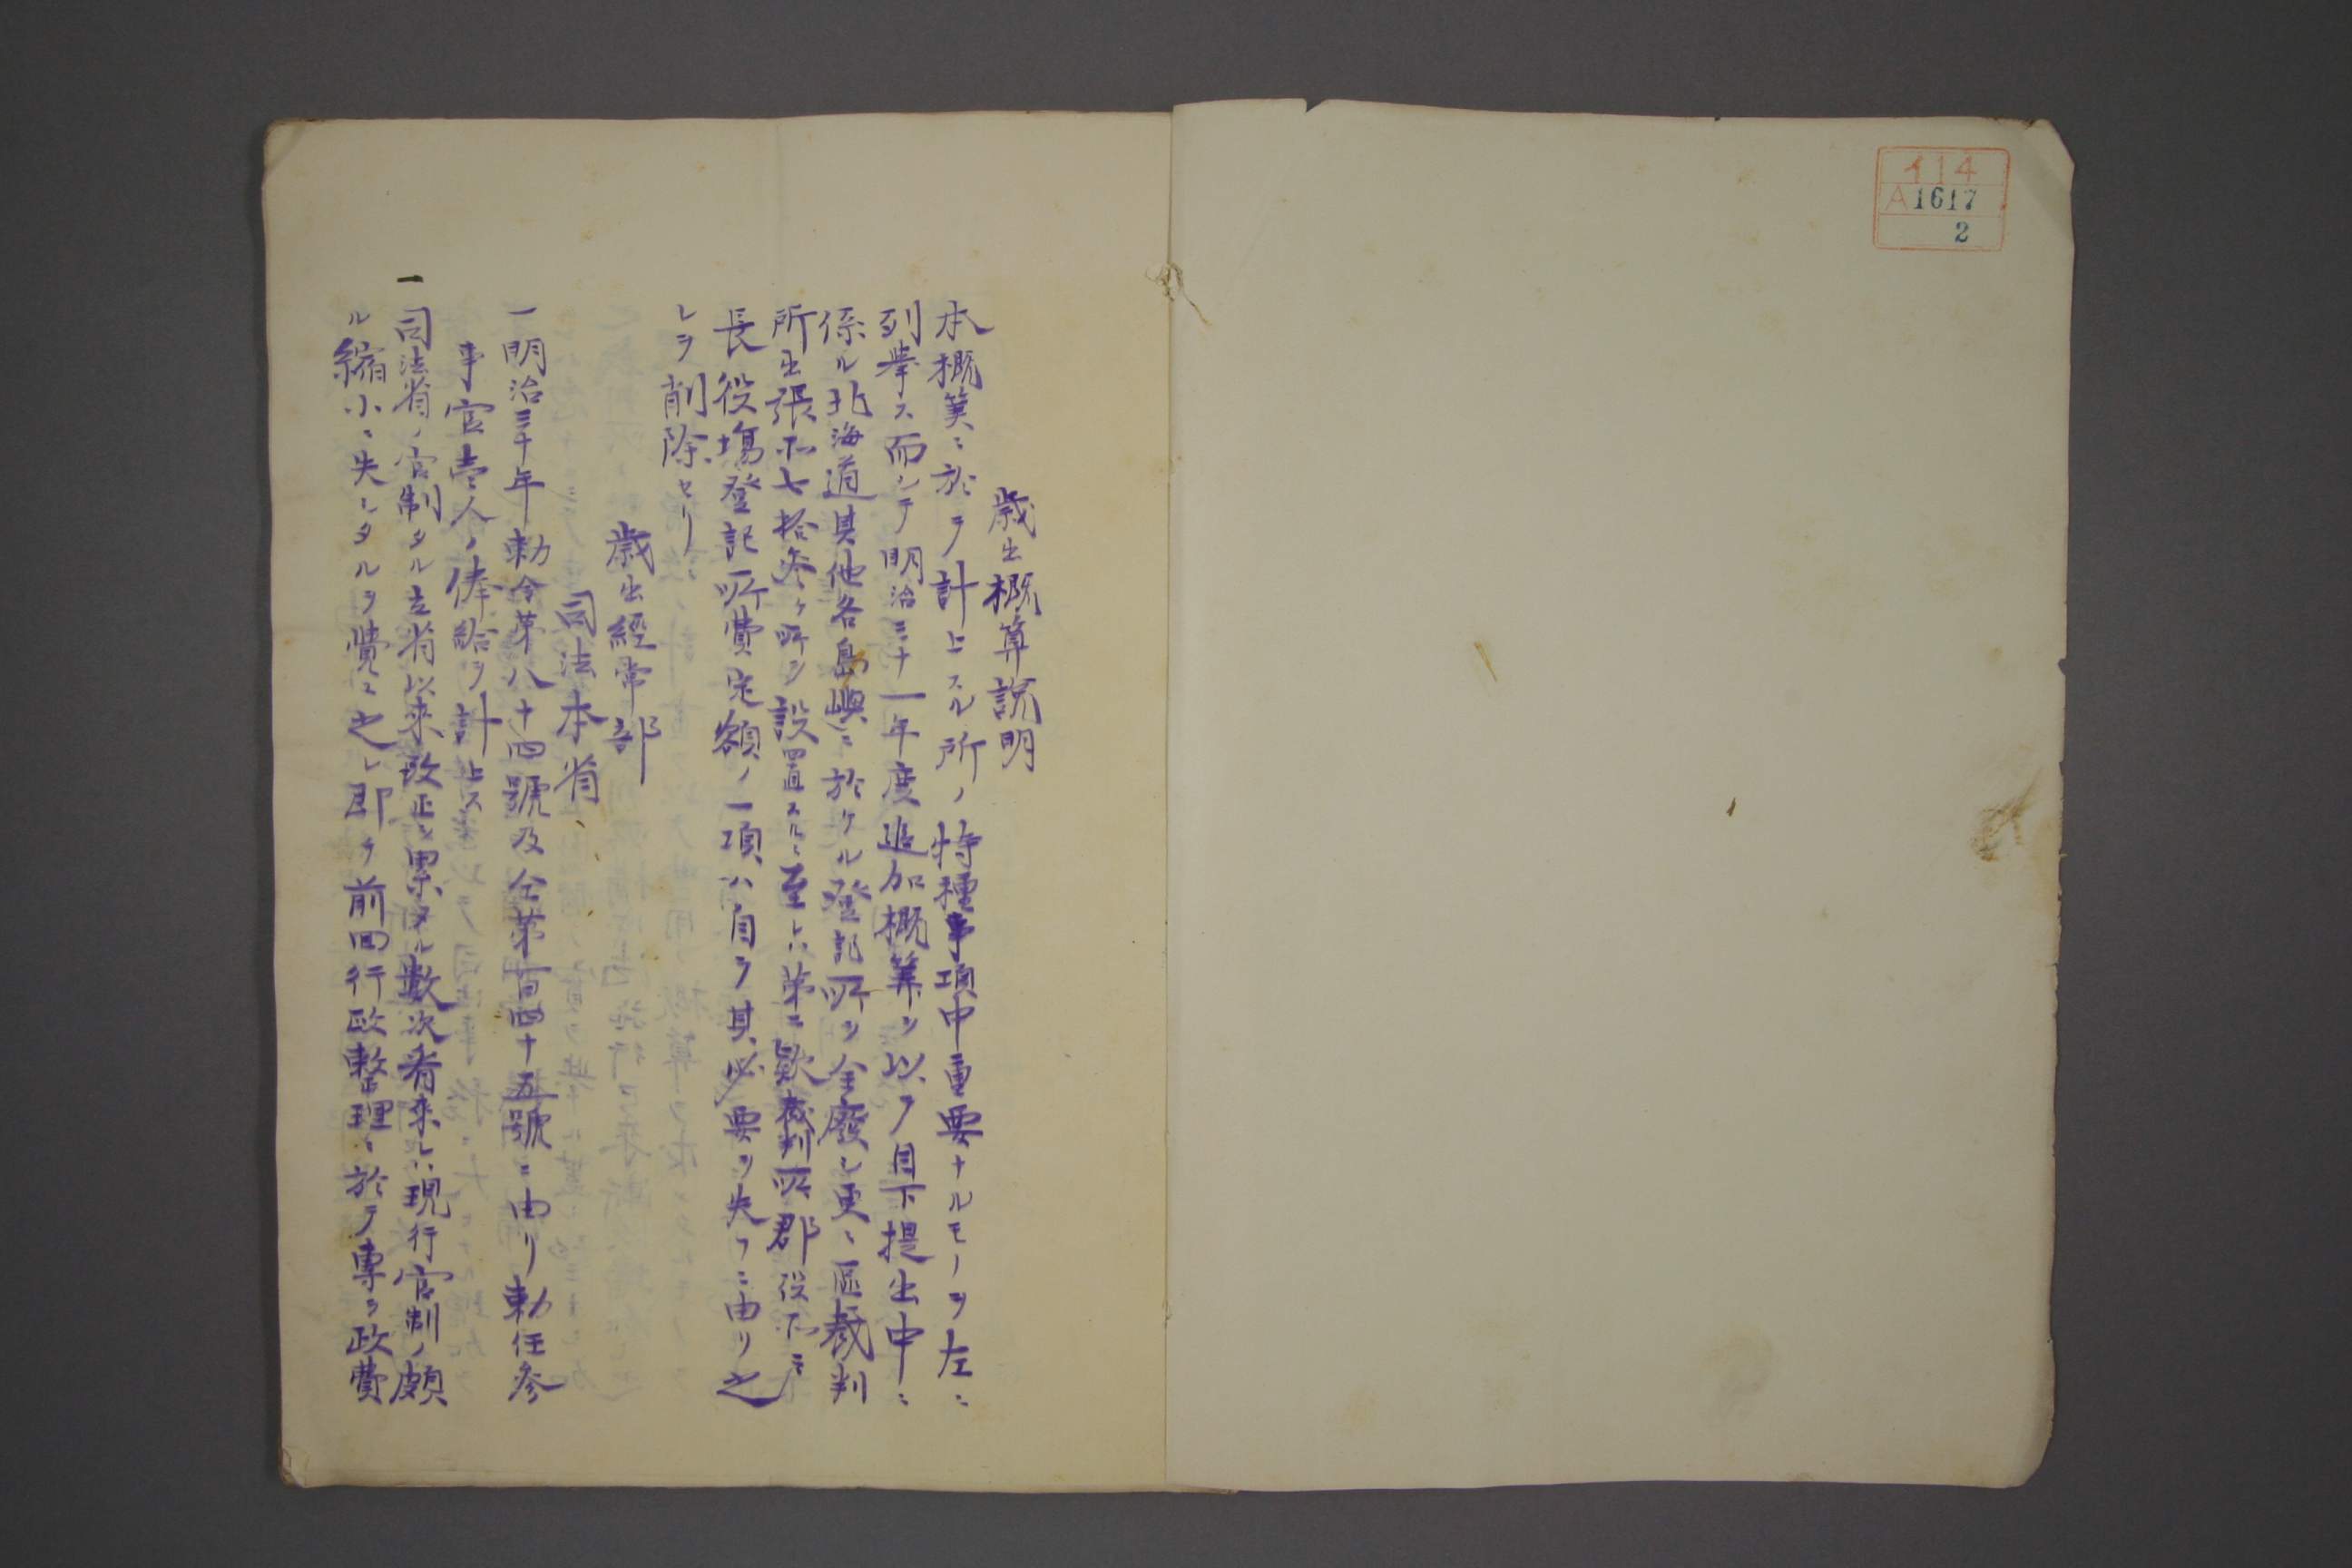 イ14
A1617
2
歳出概算説明
本概算ニ於テ計上スル所ノ特種事項中重要ナルモノヲ左ニ
列挙ス而シテ明治三十一年度追加概算ヲ以テ目下提出中ニ
係ル北海道其他各島嶼ニ於ケル登記所ヲ全廢シ更ニ區裁判
所出張所七拾参ヶ所ヲ設置スルニ至レハ第二款裁判所郡役所
長役塲登記所費定額ノ一項ハ自ラ其必要ヲ失フニ由リ之
レヲ削除セリ
歳出經常部
司法本省
一明治三十年勅令第八十四號及仝第百四十五號ニ由リ勅任参
事官壱人ノ俸給ヲ計上ス
一司法省ノ官制タル立省以来改正ヲ累タル数次看来レハ現行官制ノ頗
ル縮小ニ失シタルヲ覺ユ之レ即チ前回行政整理ニ於テ専ラ政費